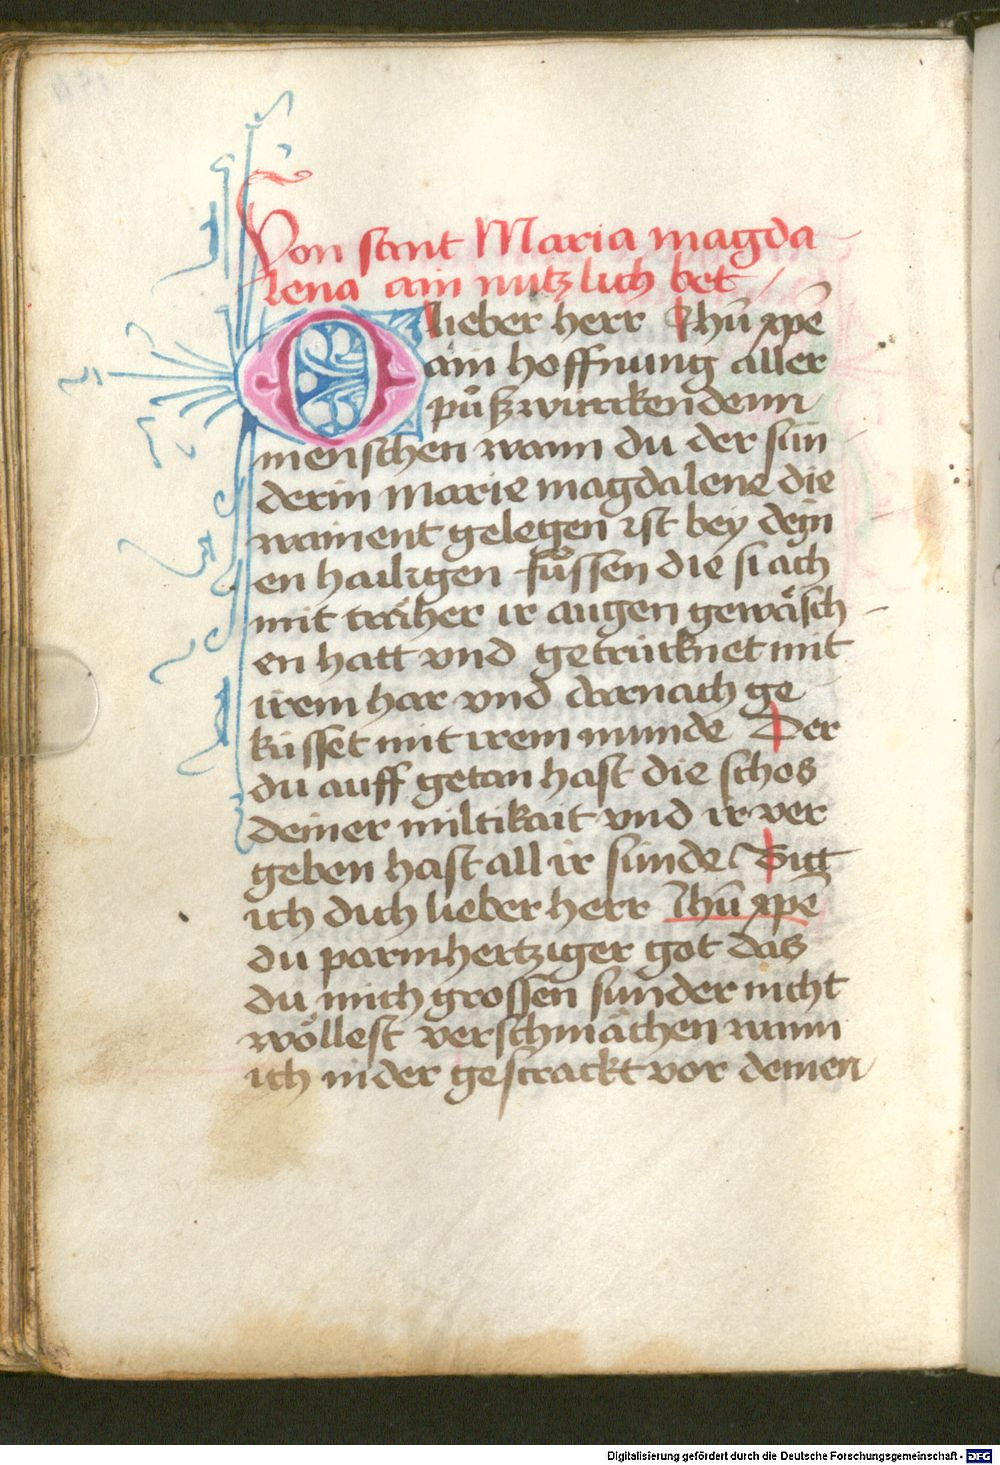 Von sant Maria magda
lena ain nützlich bet
O lieber herr Jhū xpē
ain hoffnung aller
půßwürckendenn
menschen wann du der sün
derin Marie magdalene die
wainent gelegen ist bey dein
en hailigen füssen die si ach
mit träher ir augen gewäsch
en hatt vnd getrücknet mit
irem har vnd darnach ge
küsset mit irem munde Der
du auff getan hast die schos
deiner miltikait vnd ir ver
geben hast all ir sünde Bitt
ich dich lieber herr Jhū xpē
du parmhertziger got das
du mich grossen sünder nicht
wöllest verschmächen wann
ich nider gestrackt vor deinen
Digitalisierung gefördert durch die Deutsche Forschungsgemeinschaft - DFG